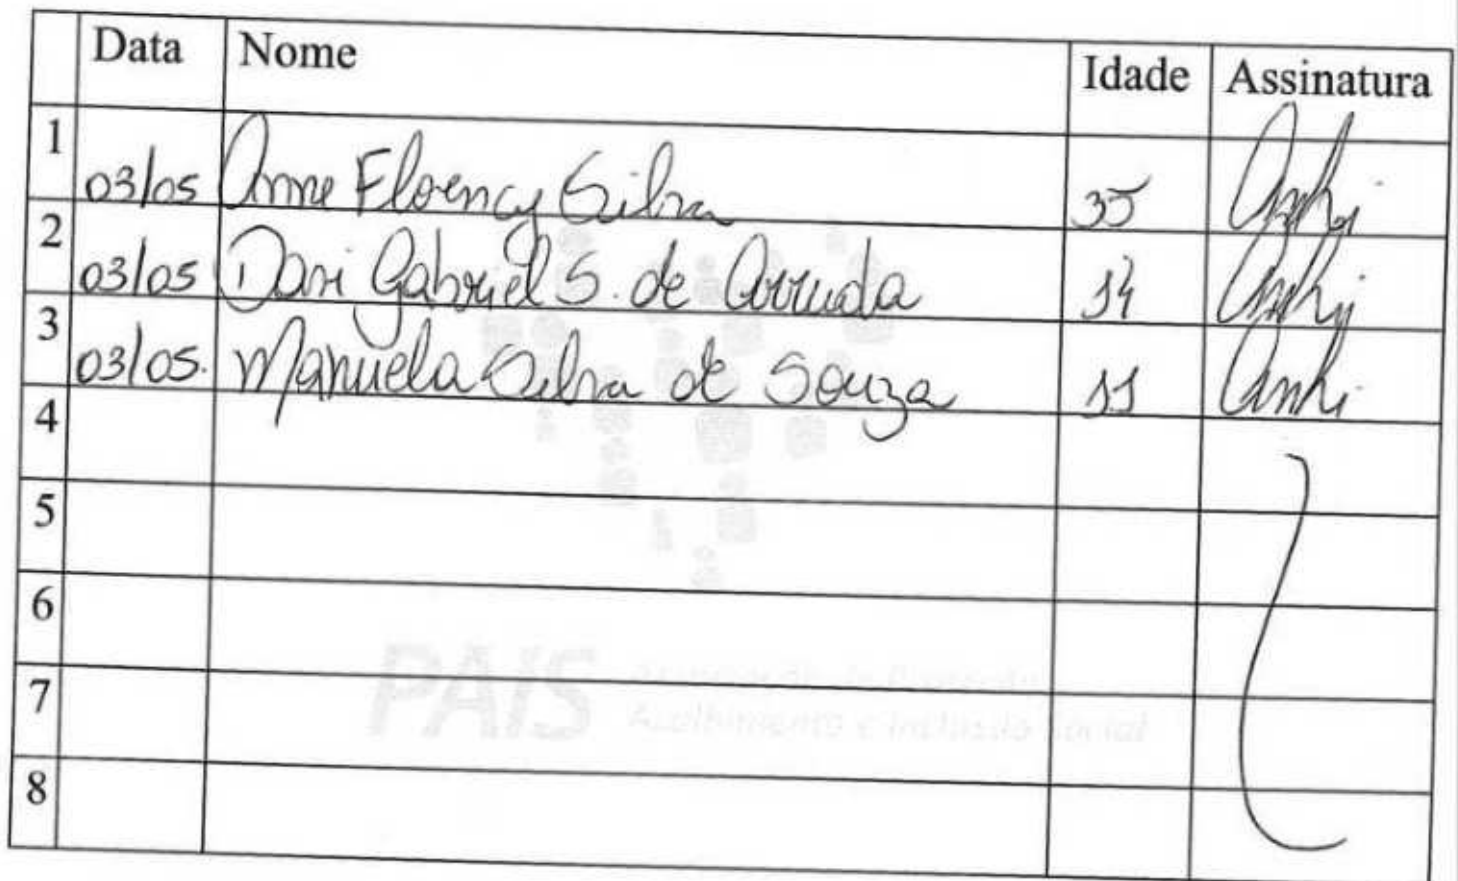 Data Nome Idade Assinatura
1 03/05 Anne Florency Silva 35
2 03/05 Davi Gabriel S. de Arruda 14
3 03/05. Manuela Silva de Souza 11
4
5
6
7
8
PAIS
Acolhimento e Inclusão Social